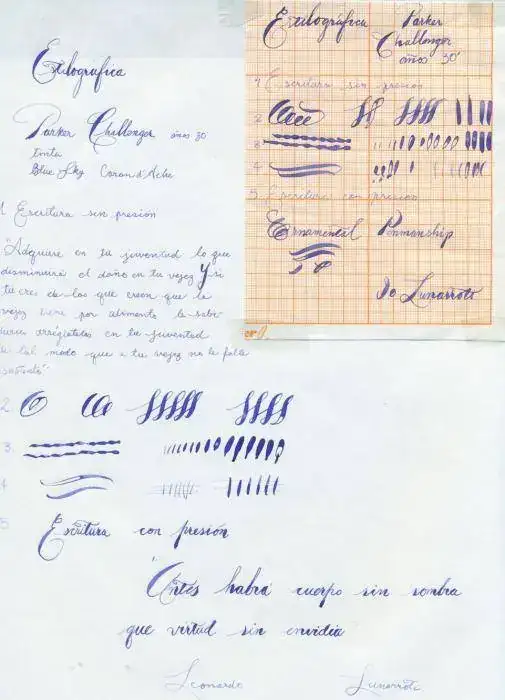 Estilográfica
Parker Challenger años 30'
tinta
Blue Sky Caran d'Ache
1. Escritura sin presión
"Adquiere en tu juventud lo que
disminuirá el daño en tu vejez y si
tu crees de los que creen que la
vejez tiene por alimento la sabi-
duria arréglatelas en tu juventud
de tal modo que a tu vejez no le falte
sustento"
2.
3.
4
5 Escritura con presión
"Antes habrá cuerpo sin sombra
que virtud sin envidia
Leonardo Lunarroto
Estilográfica Parker
Challenger
años 30'
1 Escritura sin presión
2
3
4
5 Escritura con presión
Ornamental Penmanship
Lunarroto